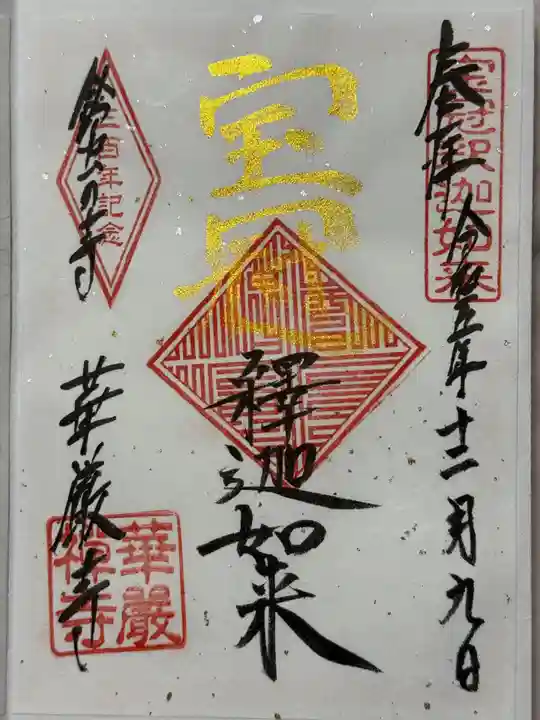 奉拝
令和五年十二月九日
宝冠釈迦如来
宝冠
釋迦如来
鈴虫の寺
三百年記念
華厳寺
華嚴
禅寺